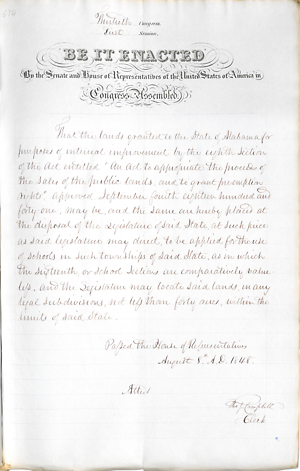 Thirtieth Congress.
First Session.
BE IT ENACTED
By the Senate and House of Representatives of the United States of America in
Congress Assembled
That the lands granted to the State of Alabama, for
purposes of internal improvement by the eighth section
of the Act entitled "An Act to appropriate the proceeds of
the sales of the public lands, and to grant preemption
rights" approved September fourth eighteen hundred and
forty one, may be, and the same are hereby placed at
the disposal of the Legislature of said State, at such price
as said Legislature may direct, to be applied for the use
of schools in such townships of said State, as in which
the sixteenth or school sections are comparatively value
less, and the Legislature may locate said lands in any
legal subdivisions, not less than forty acres, within the
limits of said State.
Passed the House of Representatives
August 8th A.D. 1848.
Attest
Campbell
Clerk